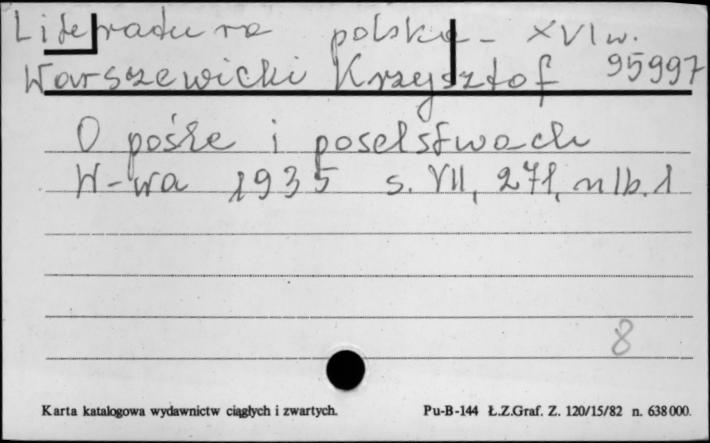 Literatura polska - XVI w.
Warszewicki Krzysztof 95997
O pośle i poselstwach
W-wa 1935 s. VII, 271, nlb. 1
8
Karta katalogowa wydawnictw ciągłych i zwartych. Pu-B-144 Ł.Z.Graf. Z. 120/15/82 n. 638000.